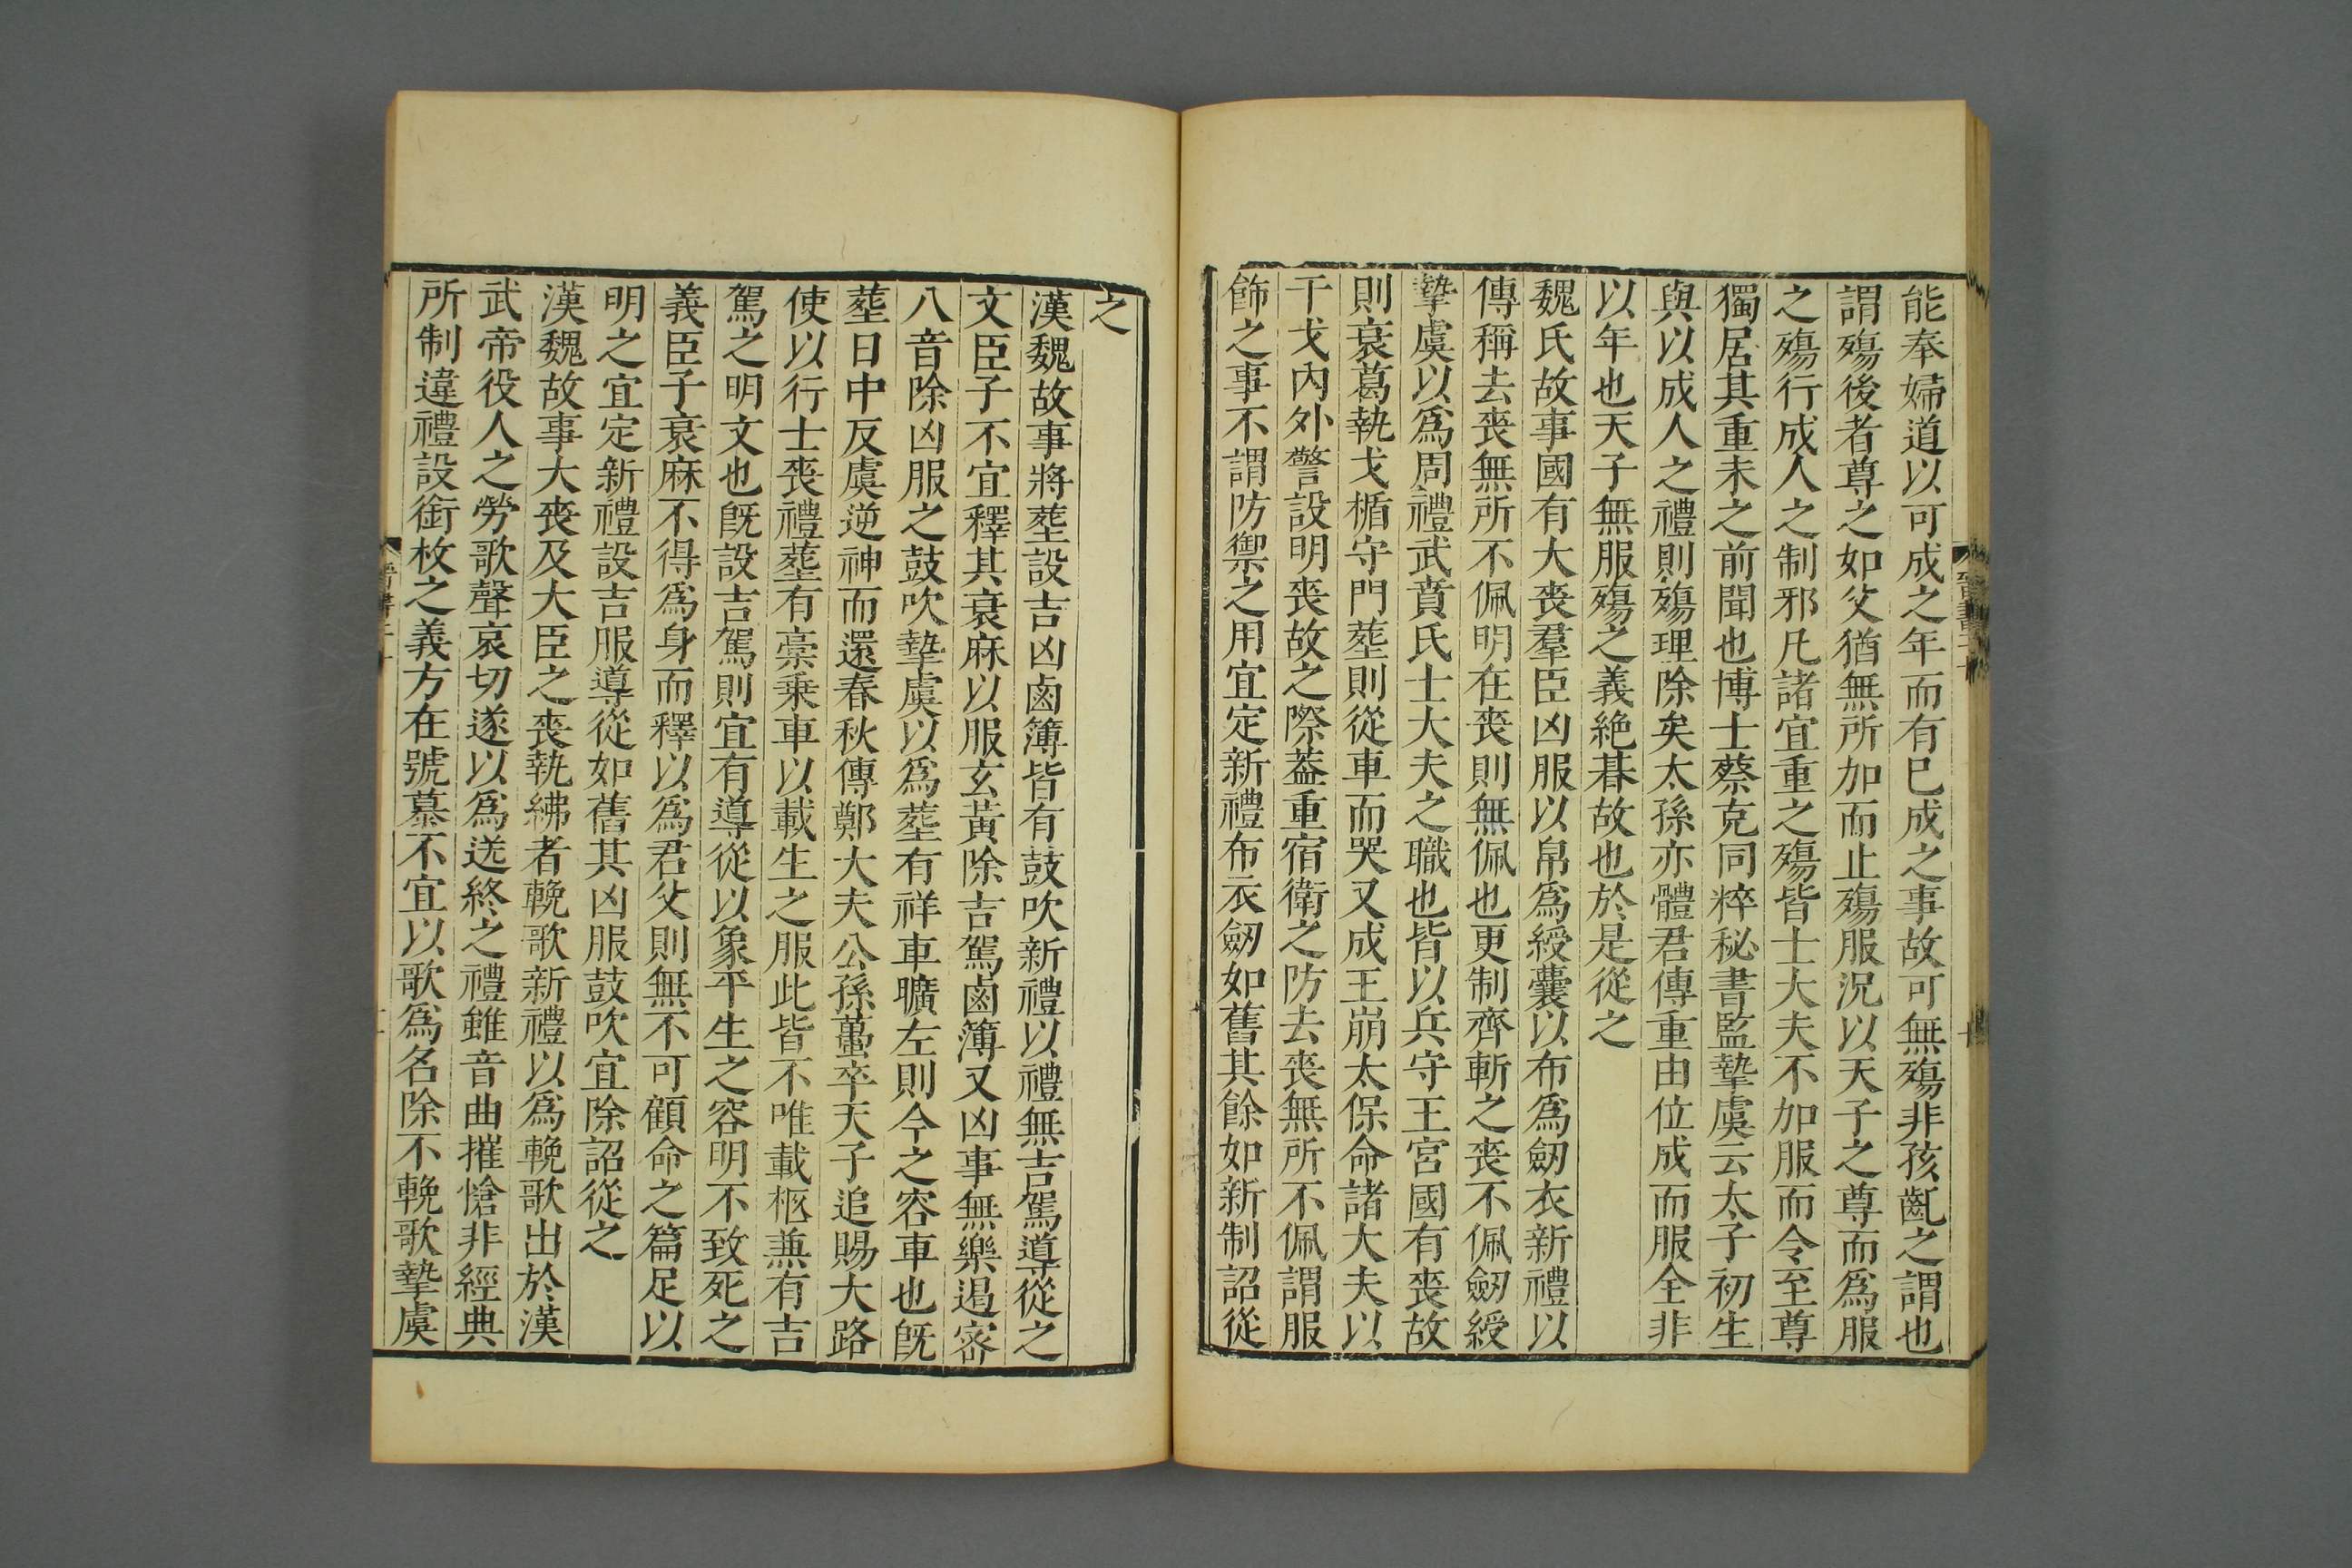 能奉婦道以可成之年而有巳成之事故可無殤非孩齔之謂也
謂殤後者尊之如父猶無所加而止殤服況以天子之尊而爲服
之殤行成人之制邪凡諸宜重之殤皆士大夫不加服而令至尊
獨居其重未之前聞也博士蔡克同粹秘書監摯虞云太子初生
與以成人之禮則殤理除矣太孫亦體君傳重由位成而服全非
以年也天子無服殤之義絶朞故也於是從之
魏氏故事國有大喪羣臣凶服以帛爲綬囊以布爲劒衣新禮以
傳稱去喪無所不佩明在喪則無佩也更制齊斬之喪不佩劒綬
摯虞以爲周禮武賁氏士大夫之職也皆以兵守王宮國有喪故
則衰葛執戈楯守門葬則從車而哭又成王崩太保命諸大夫以
干戈內外警設明喪故之際葢重宿衛之防去喪無所不佩謂服
飾之事不謂防禦之用宜定新禮布衣劒如舊其餘如新制詔從
之
漢魏故事將葬設吉凶鹵簿皆有鼓吹新禮以禮無吉駕導從之
文臣子不宜釋其衰麻以服玄黃除吉駕鹵簿又凶事無樂遏密
八音除凶服之鼓吹摯虞以爲葬有祥車曠左則今之容車也旣
葬日中反虞逆神而還春秋傳鄭大夫公孫蠆卒天子追賜大路
使以行士喪禮葬有稾乗車以載生之服此皆不唯載柩兼有吉
駕之明文也旣設吉駕則宜有導從以象平生之容明不致死之
義臣子衰麻不得爲身而釋以爲君父則無不可顧命之篇足以
明之宜定新禮設吉服導從如舊其凶服鼓吹宜除詔從之
漢魏故事大喪及大臣之喪執紼者輓歌新禮以爲輓歌出於漢
武帝役人之勞歌聲哀切遂以爲送終之禮雖音曲摧愴非經典
所制違禮設銜枚之義方在號慕不宜以歌爲名除不輓歌摯虞